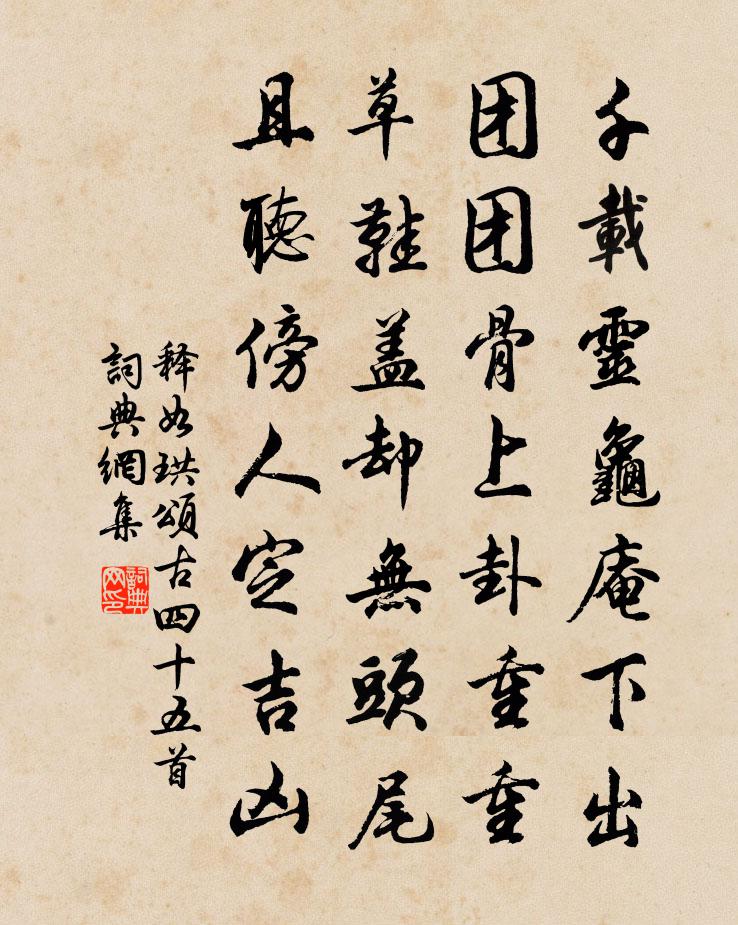 千載靈龜庵下出
团团骨上卦重重
草鞋盖却無頭尾
且聴傍人定吉凶
释如珙頌古四十五首
詞典網集
詞典网印